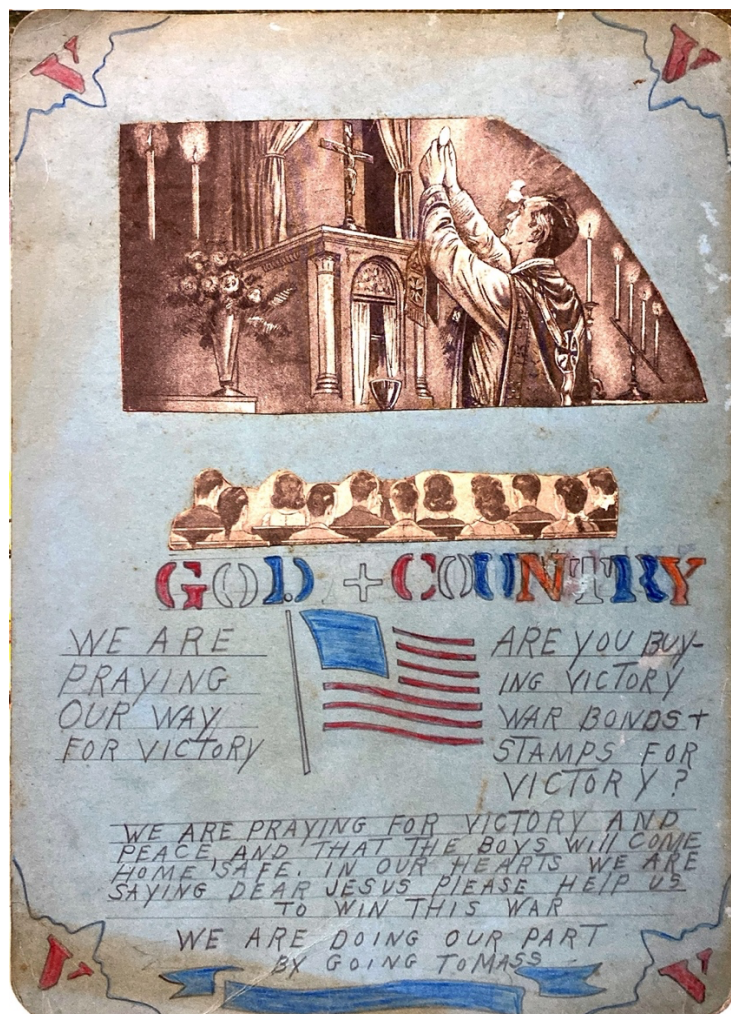 V V
GOD + COUNTRY
WE ARE
PRAYING
OUR WAY
FOR VICTORY
ARE YOU BUY-
ING VICTORY
WAR BONDS +
STAMPS FOR
VICTORY?
WE ARE PRAYING FOR VICTORY AND
PEACE, AND THAT THE BOYS WILL COME
HOME SAFE. IN OUR HEARTS WE ARE
SAYING DEAR JESUS PLEASE HELP US
TO WIN THIS WAR
WE ARE DOING OUR PART
BY GOING TO MASS
V V